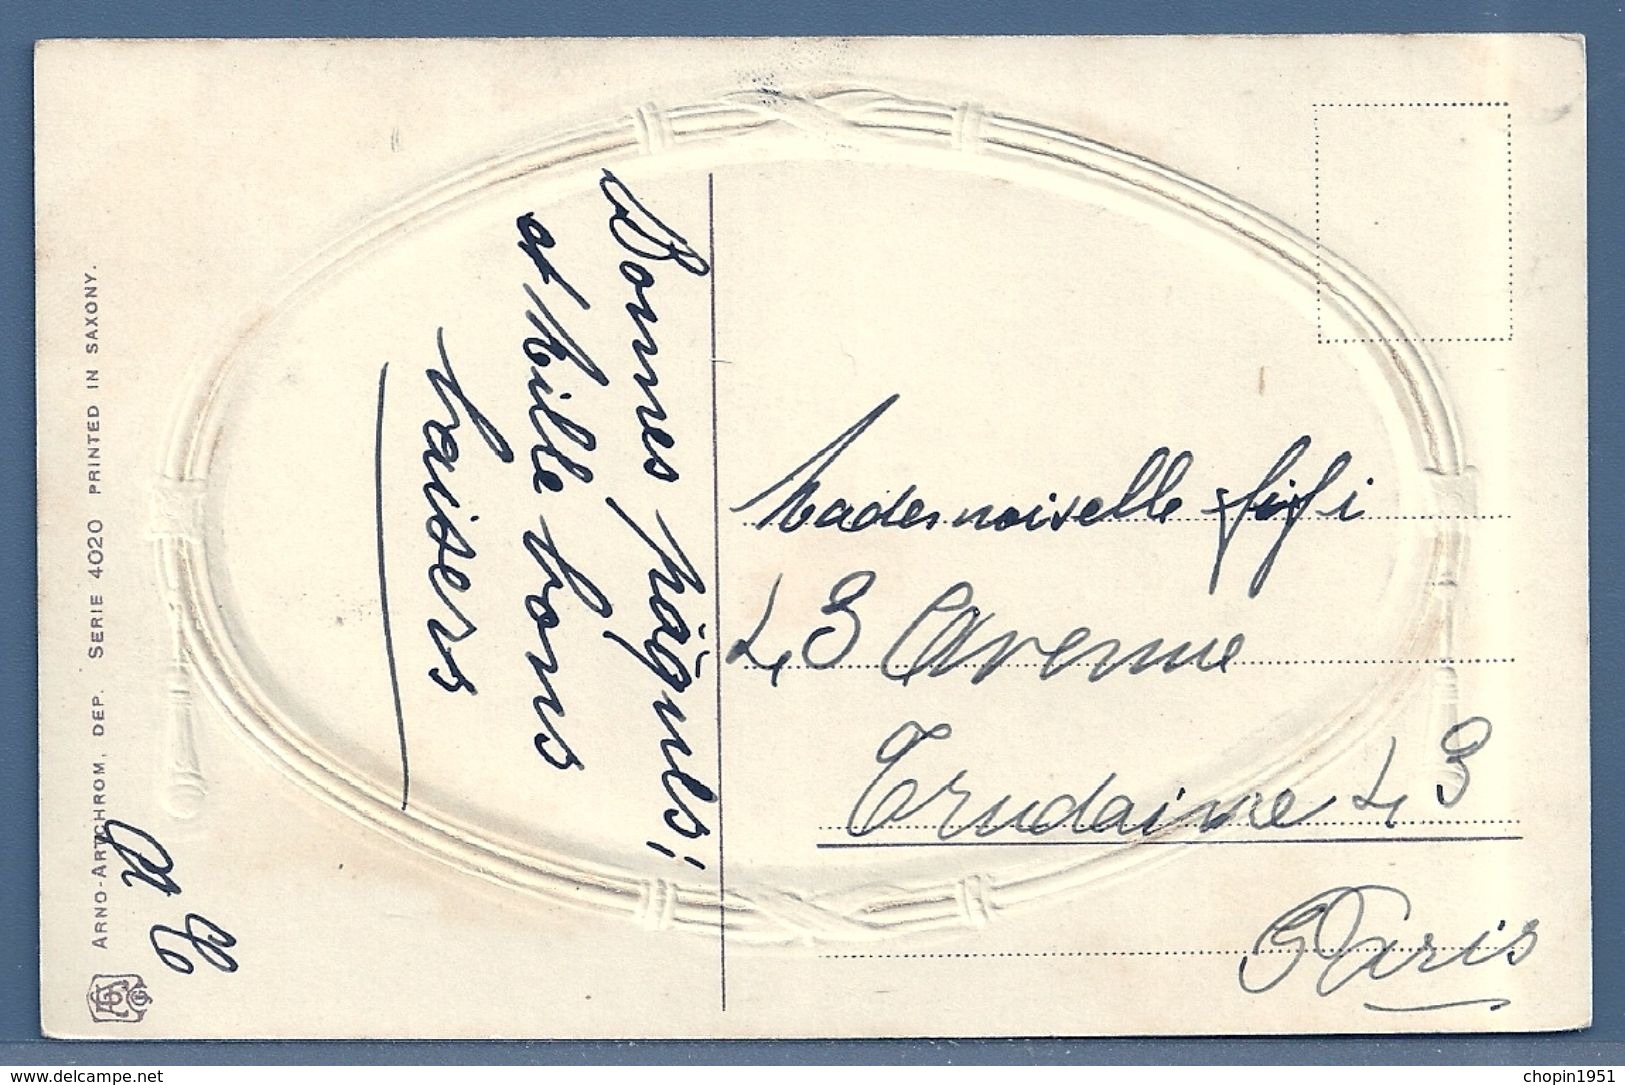 Bonnes pâques;
et Mille bons
baisers
Mademoiselle fifi
43 Avenue
Trudaine 43
Paris
ARNO-ARTCHROM, DEP. SERIE 4020 PRINTED IN SAXONY.
www.delcampe.net
chopin1951